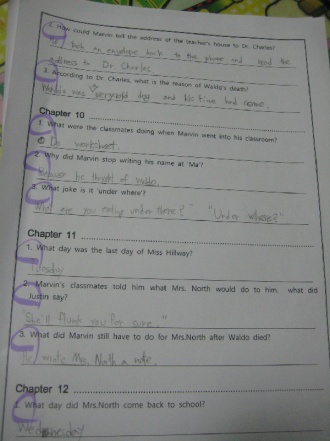 2. How could Marvin tell the address of the teacher's house to Dr. Charles?
an envelope back to the phone and read the
address to Dr. Charles
3. According to Dr. Charles, what is the reason of Waldo's death?
Waldo was very old dog and his time had come.
Chapter 10
1. What were the classmates doing when Marvin went into his classroom?
Do worksheet.
2. Why did Marvin stop writing his name at 'Ma'?
Because he thought of Waldo.
3. What joke is it 'under where'?
What are you eating under there?" "Under where?"
Chapter 11
1. What day was the last day of Miss Hillway?
Tuesday
2. Marvin's classmates told him what Mrs. North would do to him, what did
Justin say?
"She'll flunk you for sure."
3. What did Marvin still have to do for Mrs.North after Waldo died?
He wrote Mrs. North a note.
Chapter 12
1. What day did Mrs.North come back to school?
Wednesday